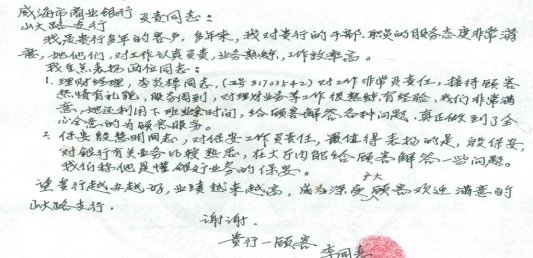 威海市商业银行 负责同志：
山大路支行
我是贵行多年的客户，多年来，我对贵行的干部、职员的服务态度非常满
意，她他们，对工作认真负责，业务熟练，工作效率高。
我主点表扬两位同志：
1. 理财经理，李英棣同志，（工号31702542）对工作非常负责任，接待顾客
热情有礼貌，服务周到，对理财业务等工作很熟练有经验，我们非常满
意，她还利用下班业余时间，给顾客解答各种问题，真正做到了全
心全意的为顾客服务。
2. 保安殷慧明同志，对保安工作负责任，最值得表扬的是，殷保安，
对银行有关业务比较熟悉，在大厅内能给顾客解答一些问题。
我们称他是懂银行业务的保安。
读贵行越办越好，业绩越来越高，成为深受广大顾客欢迎满意的
山大路支行。
谢谢。
贵行一顾客
李同志